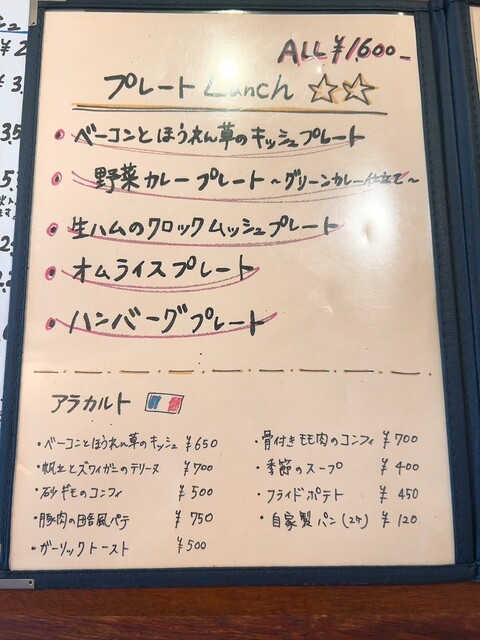 ALL ¥1,600-
プレートLunch ☆☆
• ベーコンとほうれん草のキッシュプレート
• 野菜カレープレート ～グリーンカレー仕立て～
• 生ハムのクロックムッシュプレート
• オムライスプレート
• ハンバーグプレート
アラカルト
・ベーコンとほうれん草のキッシュ ¥650
・帆立とズワイガニのテリーヌ ¥700
・砂ギモのコンフィ ¥500
・豚肉の田舎風パテ ¥750
・ガーリックトースト ¥500
・骨付きモモ肉のコンフィ ¥700
・季節のスープ ¥400
・フライドポテト ¥450
・自家製パン(2ケ) ¥120